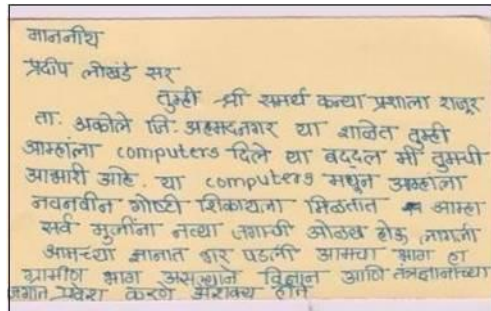 माननीय
प्रदीप लोखंडे सर
तुम्ही श्री समर्थ कन्या प्रशाला राजूर
ता. अकोले जि. अहमदनगर या शाळेत तुम्ही
आम्हांला computers दिले या बद्दल मी तुमची
आभारी आहे. या computers मधून आम्हांला
नवनवीन गोष्टी शिकायला मिळतात आम्हा
सर्व मुलींना नव्या जगाची ओळख होऊ लागली
आमच्या ज्ञानात भर पडली आमचा भाग हा
ग्रामीण भाग असल्याने विज्ञान आणि तंत्रज्ञानाच्या
जगात प्रवेश करणे अशक्य होते